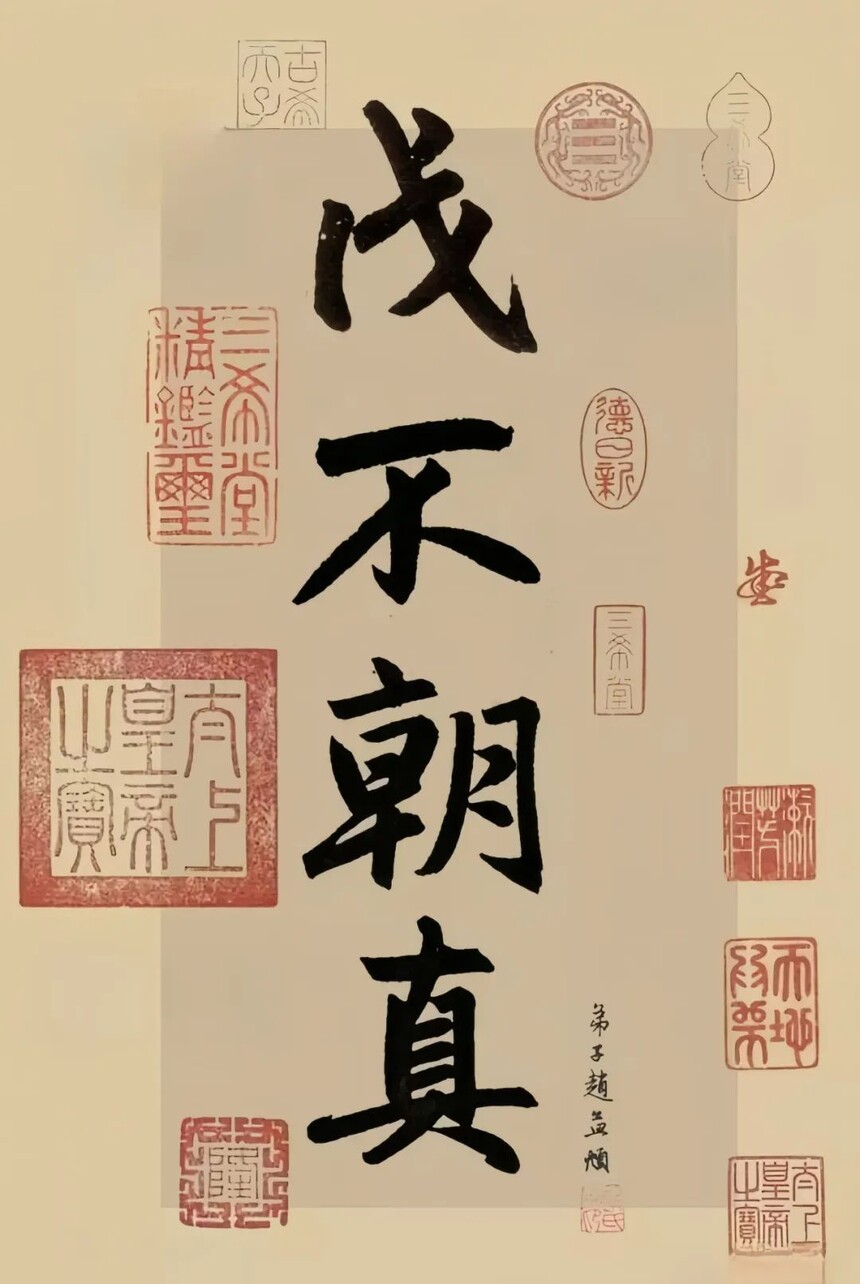 古希天子
三希堂
戊不朝真
三希堂精鑑璽
德日新
三希堂
太上皇帝之寶
漱芳潤
弟子趙孟頫
太上皇帝之寶